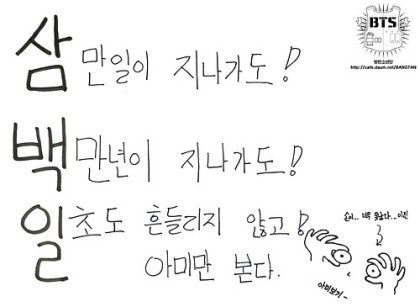 BTS
방탄소년단
http://cafe.daum.net/BANGTAN
삼만일이 지나가도!
백만년이 지나가도!
일초도 흔들리지 않고!
아미만 본다.
아미보기..